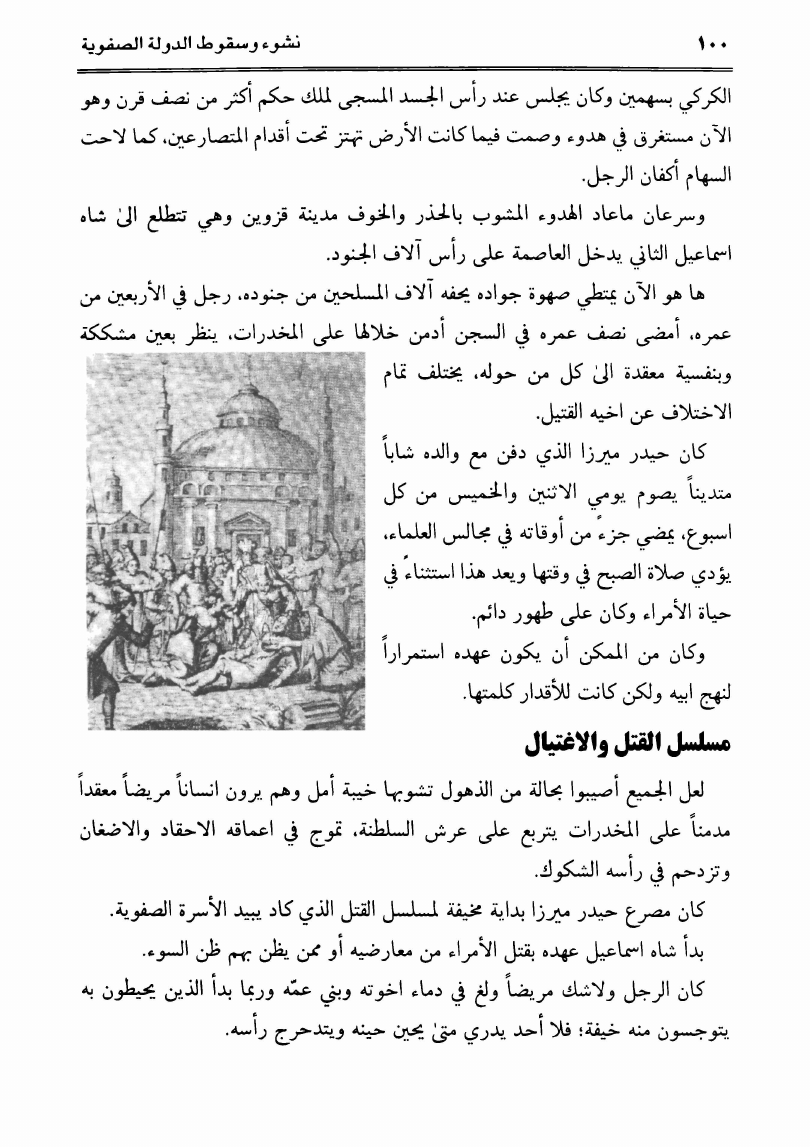 ١٠٠
نشوء وسقوط الدولة الصفوية
الكركي بسهمين وكان يجلس عند رأس الجسد المسجى لملك حكم أكثر من نصف قرن وهو
الآن مستغرق في هدوء وصمت فيما كانت الأرض تهتز تحت أقدام المتصارعين، كما لاحت
السهام أكفان الرجل.
وسرعان ماعاد الهدوء المشوب بالحذر والخوف مدينة قزوين وهي تتطلع الىٰ شاه
اسماعيل الثاني يدخل العاصمة على رأس آلاف الجنود.
ها هو الآن يمتطي صهوة جواده يحفه آلاف المسلحين من جنوده، رجل في الأربعين من
عمره، أمضى نصف عمره في السجن أدمن خلالها على المخدرات، ينظر بعين مشككة
وبنفسية معقدة الىٰ كل من حوله، يختلف تمام
الاختلاف عن اخيه القتيل.
كان حيدر ميرزا الذي دفن مع والده شاباً
متديناً يصوم يومي الاثنين والخميس من كل
اسبوع، يمضي جزءً من أوقاته في مجالس العلماء،
يؤدي صلاة الصبح في وقتها ويعد هذا استثناءً في
حياة الأمراء وكان على طهور دائم.
وكان من الممكن أن يكون عهده استمراراً
لنهج ابيه ولكن كانت للأقدار كلمتها.
مسلسل القتل والاغتيال
لعل الجميع أصيبوا بحالة من الذهول تشوبها خيبة أمل وهم يرون انساناً مريضاً معقداً
مدمناً على المخدرات يتربع على عرش السلطنة، تموج في اعماقه الاحقاد والاضغان
وتزدحم في رأسه الشكوك.
كان مصرع حيدر ميرزا بداية مخيفة لمسلسل القتل الذي كاد يبيد الأسرة الصفوية.
بدأ شاه اسماعيل عهده بقتل الأمراء من معارضيه أو ممن يظن بهم ظن السوء.
كان الرجل ولاشك مريضاً ولغ في دماء اخوته وبني عمّه وربما بدأ الذين يحيطون به
يتوجسون منه خيفة؛ فلا أحد يدري متىٰ يحين حينه ويتدحرج رأسه.